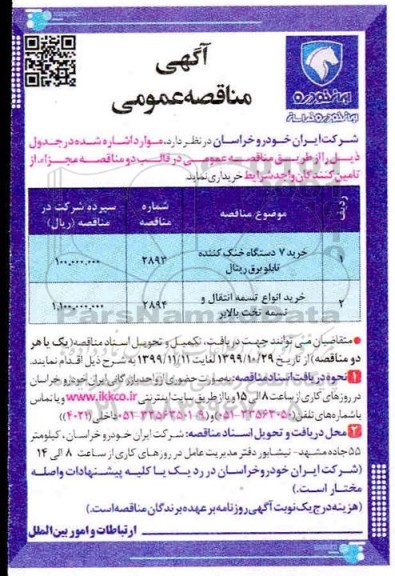 آگهی
مناقصه عمومی
ایران خودرو
ایران خودرو خراسان
شرکت ایران خودرو خراسان در نظر دارد، موارد اشاره شده در جدول
ذیل را از طریق مناقصه عمومی در قالب دو مناقصه مجزا، از
تامین کنندگان واجد شرایط خریداری نماید.
ردیف موضوع مناقصه شماره مناقصه سپرده شرکت در مناقصه (ریال)
۱ خرید ۷ دستگاه خنک کننده تابلو برق ریتال ۲۸۹۳ ۱۰۰,۰۰۰,۰۰۰
۲ خرید انواع تسمه انتقال و تسمه تخت بالابر ۲۸۹۴ ۱,۱۰۰,۰۰۰,۰۰۰
ParsNamadData
متقاضیان می توانند جهت دریافت، تکمیل و تحویل اسناد مناقصه (یک یا هر
دو مناقصه) از تاریخ ۱۳۹۹/۱۰/۲۹ لغایت ۱۳۹۹/۱۱/۱۱ به شرح ذیل اقدام نمایند.
۱ نحوه دریافت اسناد مناقصه: به صورت حضوری از واحد بازرگانی ایران خودرو خراسان
در روزهای کاری از ساعت ۸ الی ۱۵ و یا از طریق سایت اینترنتی www.ikkco.ir و یا تماس
با شماره های تلفن (۰۵۱-۳۳۵۶۳۰۵۰ و ۹-۰۵۱-۳۳۵۶۳۵۰۱ داخلی ۴۰۲۷)
۲ محل دریافت و تحویل اسناد مناقصه: شرکت ایران خودرو خراسان، کیلومتر
۵۵ جاده مشهد- نیشابور دفتر مدیریت عامل در روزهای کاری از ساعت ۸ الی ۱۴
(شرکت ایران خودرو خراسان در رد یک یا کلیه پیشنهادات واصله
مختار است.)
(هزینه درج یک نوبت آگهی روزنامه بر عهده برندگان مناقصه است.)
ارتباطات و امور بین الملل